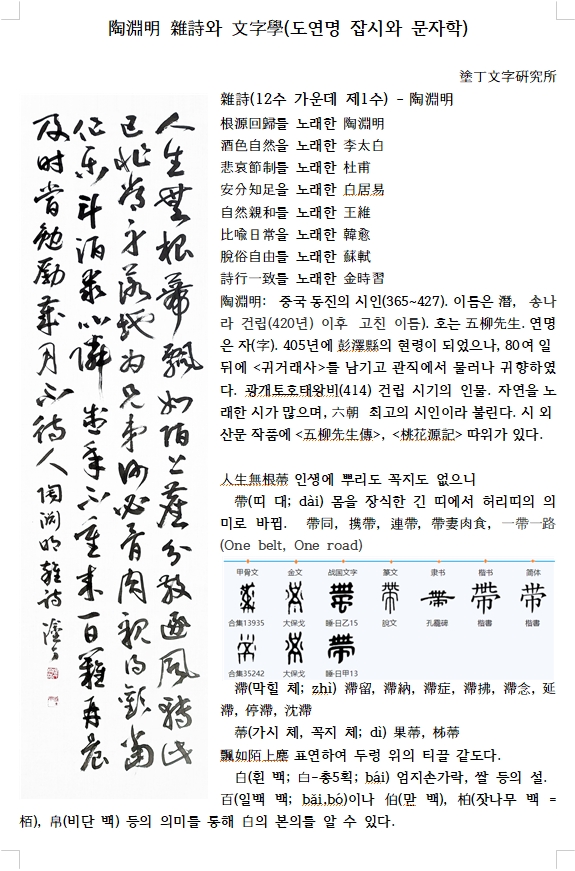 陶淵明 雜詩와 文字學(도연명 잡시와 문자학)
塗丁文字硏究所
人生無根蔕飄如陌上塵分散逐風轉此
已非常身落地为兄弟何必骨肉親得歡當
作樂斗酒聚比隣盛年不重来一日難再晨
及时當勉勵歲月不待人 陶淵明雜詩 塗丁
雜詩(12수 가운데 제1수) - 陶淵明
根源回歸를 노래한 陶淵明
酒色自然을 노래한 李太白
悲哀節制를 노래한 杜甫
安分知足을 노래한 白居易
自然親和를 노래한 王維
比喩日常을 노래한 韓愈
脫俗自由를 노래한 蘇軾
詩行一致를 노래한 金時習
陶淵明: 중국 동진의 시인(365~427). 이름은 潛, 송나
라 건립(420년) 이후 고친 이름). 호는 五柳先生. 연명
은 자(字). 405년에 彭澤縣의 현령이 되었으나, 80여 일
뒤에 <귀거래사>를 남기고 관직에서 물러나 귀향하였
다. 광개토호태왕비(414) 건립 시기의 인물. 자연을 노
래한 시가 많으며, 六朝 최고의 시인이라 불린다. 시 외
산문 작품에 <五柳先生傳>, <桃花源記> 따위가 있다.
人生無根蔕 인생에 뿌리도 꼭지도 없으니
帶(띠 대; dài) 몸을 장식한 긴 띠에서 허리띠의 의
미로 바뀜. 帶同, 携帶, 連帶, 帶妻肉食, 一帶一路
(One belt, One road)
甲骨文 金文 战国文字 篆文 隶书 楷书 简体
合集13935 大保戈 睡·日乙15 說文 孔龗碑 楷書 楷書
合集35242 大保戈 睡·日甲13
滯(막힐 체; zhì) 滯留, 滯納, 滯症, 滯拂, 滯念, 延
滯, 停滯, 沈滯
蔕(가시 체, 꼭지 체; dì) 果蔕, 柹蔕
飄如陌上塵 표연하여 두렁 위의 티끌 같도다.
白(흰 백; 白-총5획; bái) 엄지손가락, 쌀 등의 설.
百(일백 백; bǎi,bó)이나 伯(맏 백), 柏(잣나무 백 =
栢), 帛(비단 백) 등의 의미를 통해 白의 본의를 알 수 있다.